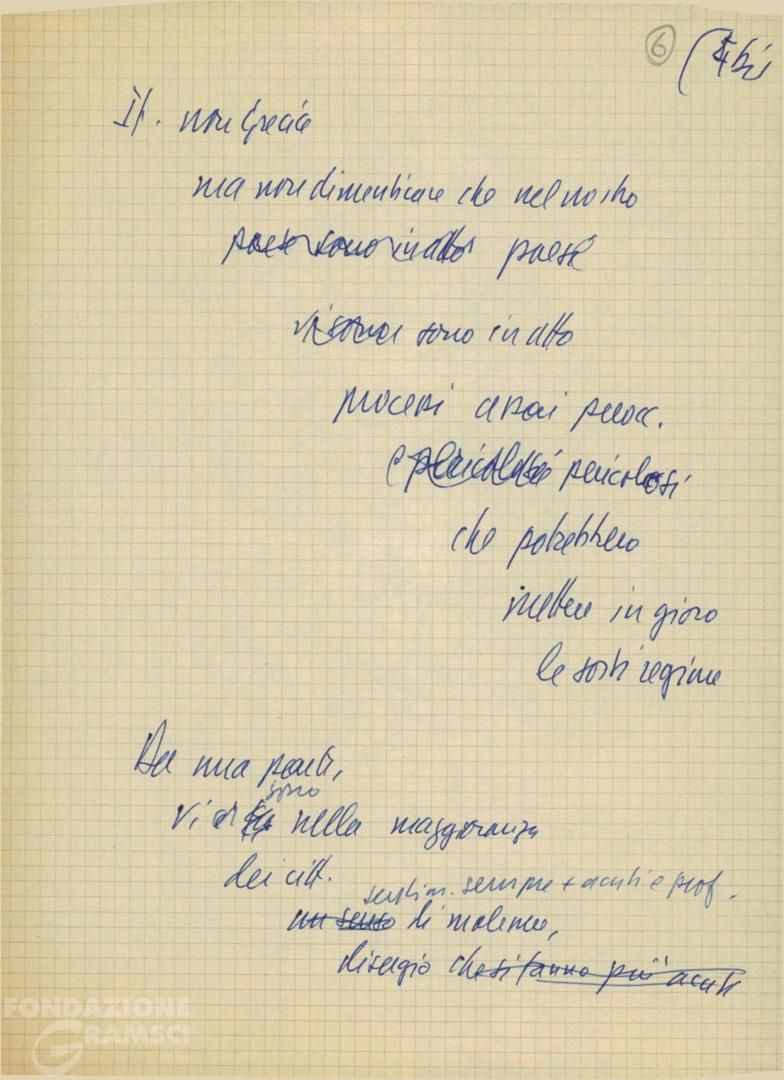 6 (4 bis
It. non Grecia
ma non dimenticare che nel nostro
paese sono in atto paese
vi sono sono in atto
processi assai preocc.
e pericolosi pericolosi
che potrebbero
mettere in gioco
le sorti regime
Da una parte,
sono
vi nella maggioranza
dei citt.
sentim. sempre + acuti e prof.
un senso di malessere,
disagio che si fanno più acuti
FONDAZIONE
GRAMSCI
onlus